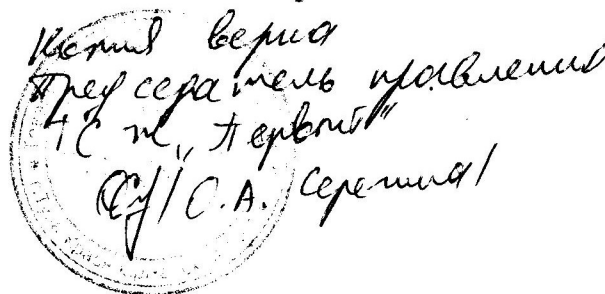 Копия верна
Председатель правления
ТСЖ "Первый"
/О.А. Серегина/